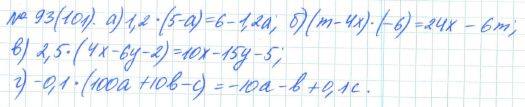 № 93(101). а) 1,2·(5-а)=6-1,2а; б) (m-4x)·(-6)=24x-6m;
в) 2,5·(4x-6y-2)=10x-15y-5;
г) -0,1·(100а+10в-с)=-10а-в+0,1с.